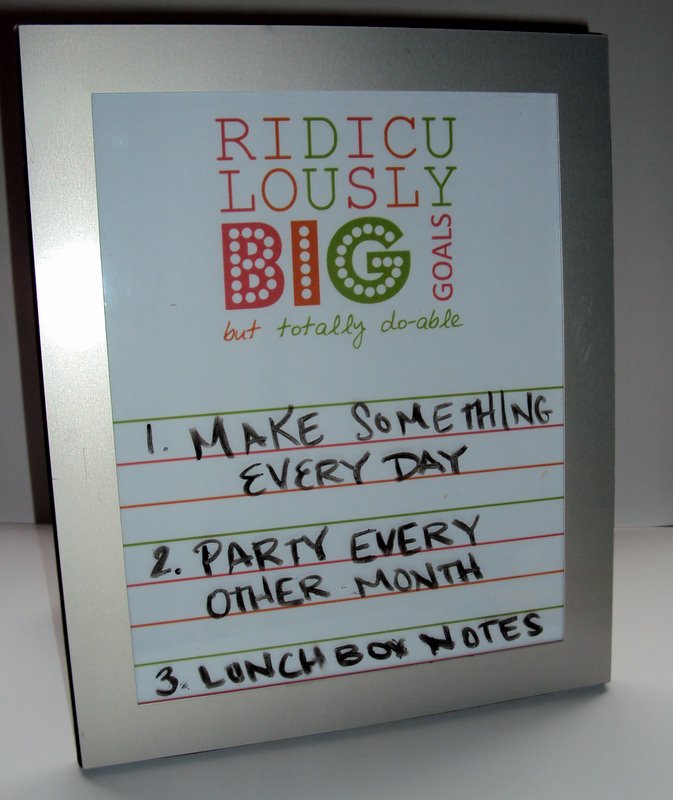 RIDICU
LOUSLY
BIG GOALS
but totally do-able
1. MAKE SOMETHING
EVERY DAY
2. PARTY EVERY
OTHER MONTH
3. LUNCHBOX NOTES